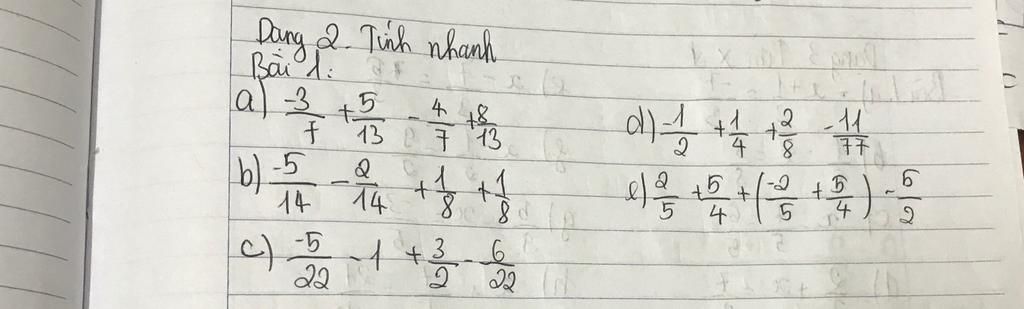 Dạng 2. Tính nhanh
Bài 1:
a) -3/7 + 5/13 - 4/7 + 8/13
d) -1/2 + 1/4 + 2/8 - 11/77
b) -5/14 - 2/14 + 1/8 + 1/8
e) 2/5 + 5/4 + (-2/5 + 5/4) - 5/2
c) -5/22 - 1 + 3/2 - 6/22